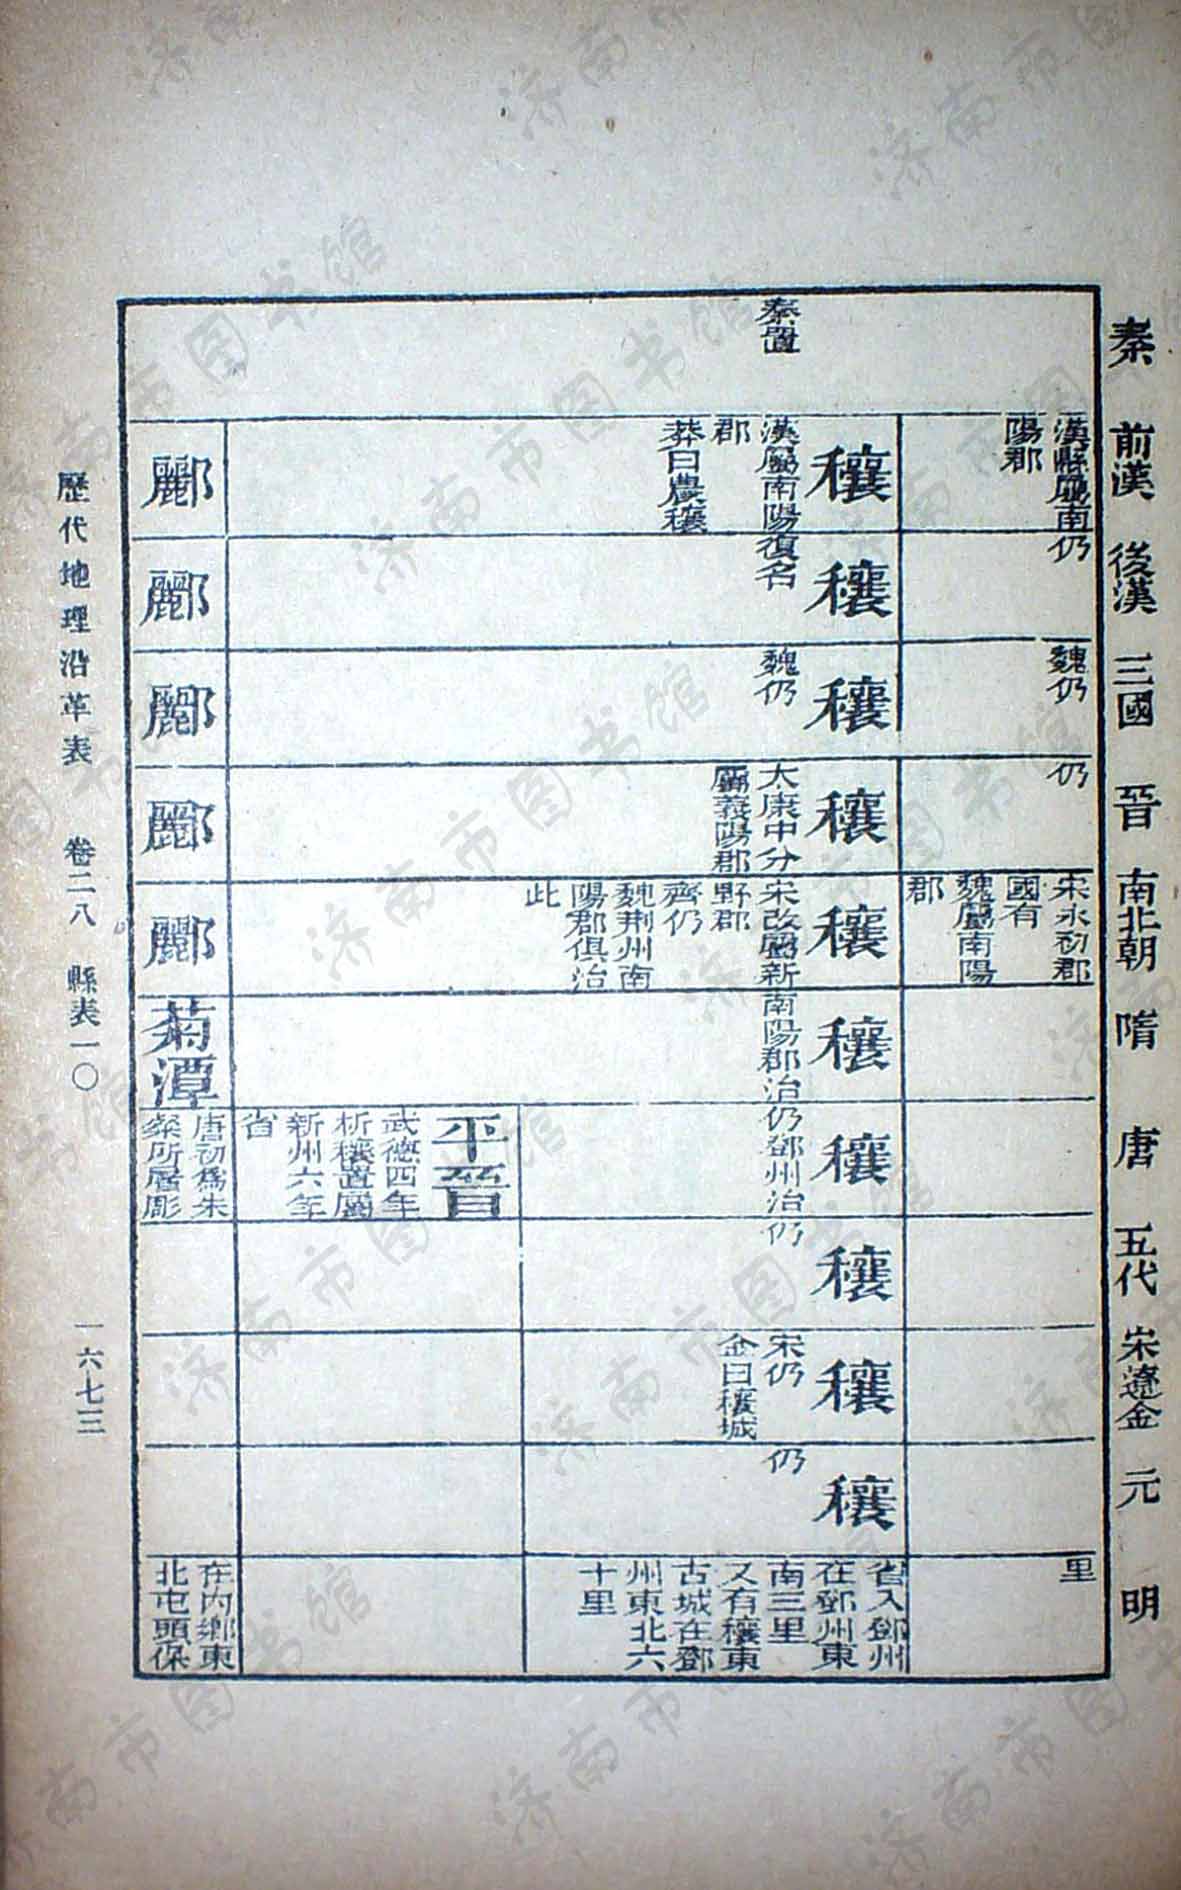 秦
前漢
後漢
三國
晉
南北朝
隋
唐
五代
宋遼金
元
明
漢縣屬南
陽郡
仍
魏仍
仍
宋永初郡
國有
魏屬南陽
郡
里
秦置
穰
漢屬南陽
郡
莽曰農穰
穰
復名
穰
魏仍
穰
太康中分
屬義陽郡
穰
宋改屬新
野郡
齊仍
魏荆州南
陽郡俱治
此
穰
南陽郡治
穰
仍鄧州治
穰
仍
穰
宋仍
金曰穰城
穰
仍
省入鄧州
在鄧州東
南三里
又有穰東
古城在鄧
州東北六
十里
平晉
武德四年
析穰置屬
新州六年
省
酈
酈
酈
酈
酈
菊潭
唐初爲朱
粲所屠彫
在内鄉東
北屯頭保
歷代地理沿革表 卷二八 縣表一〇 一六七三
济南市图书馆